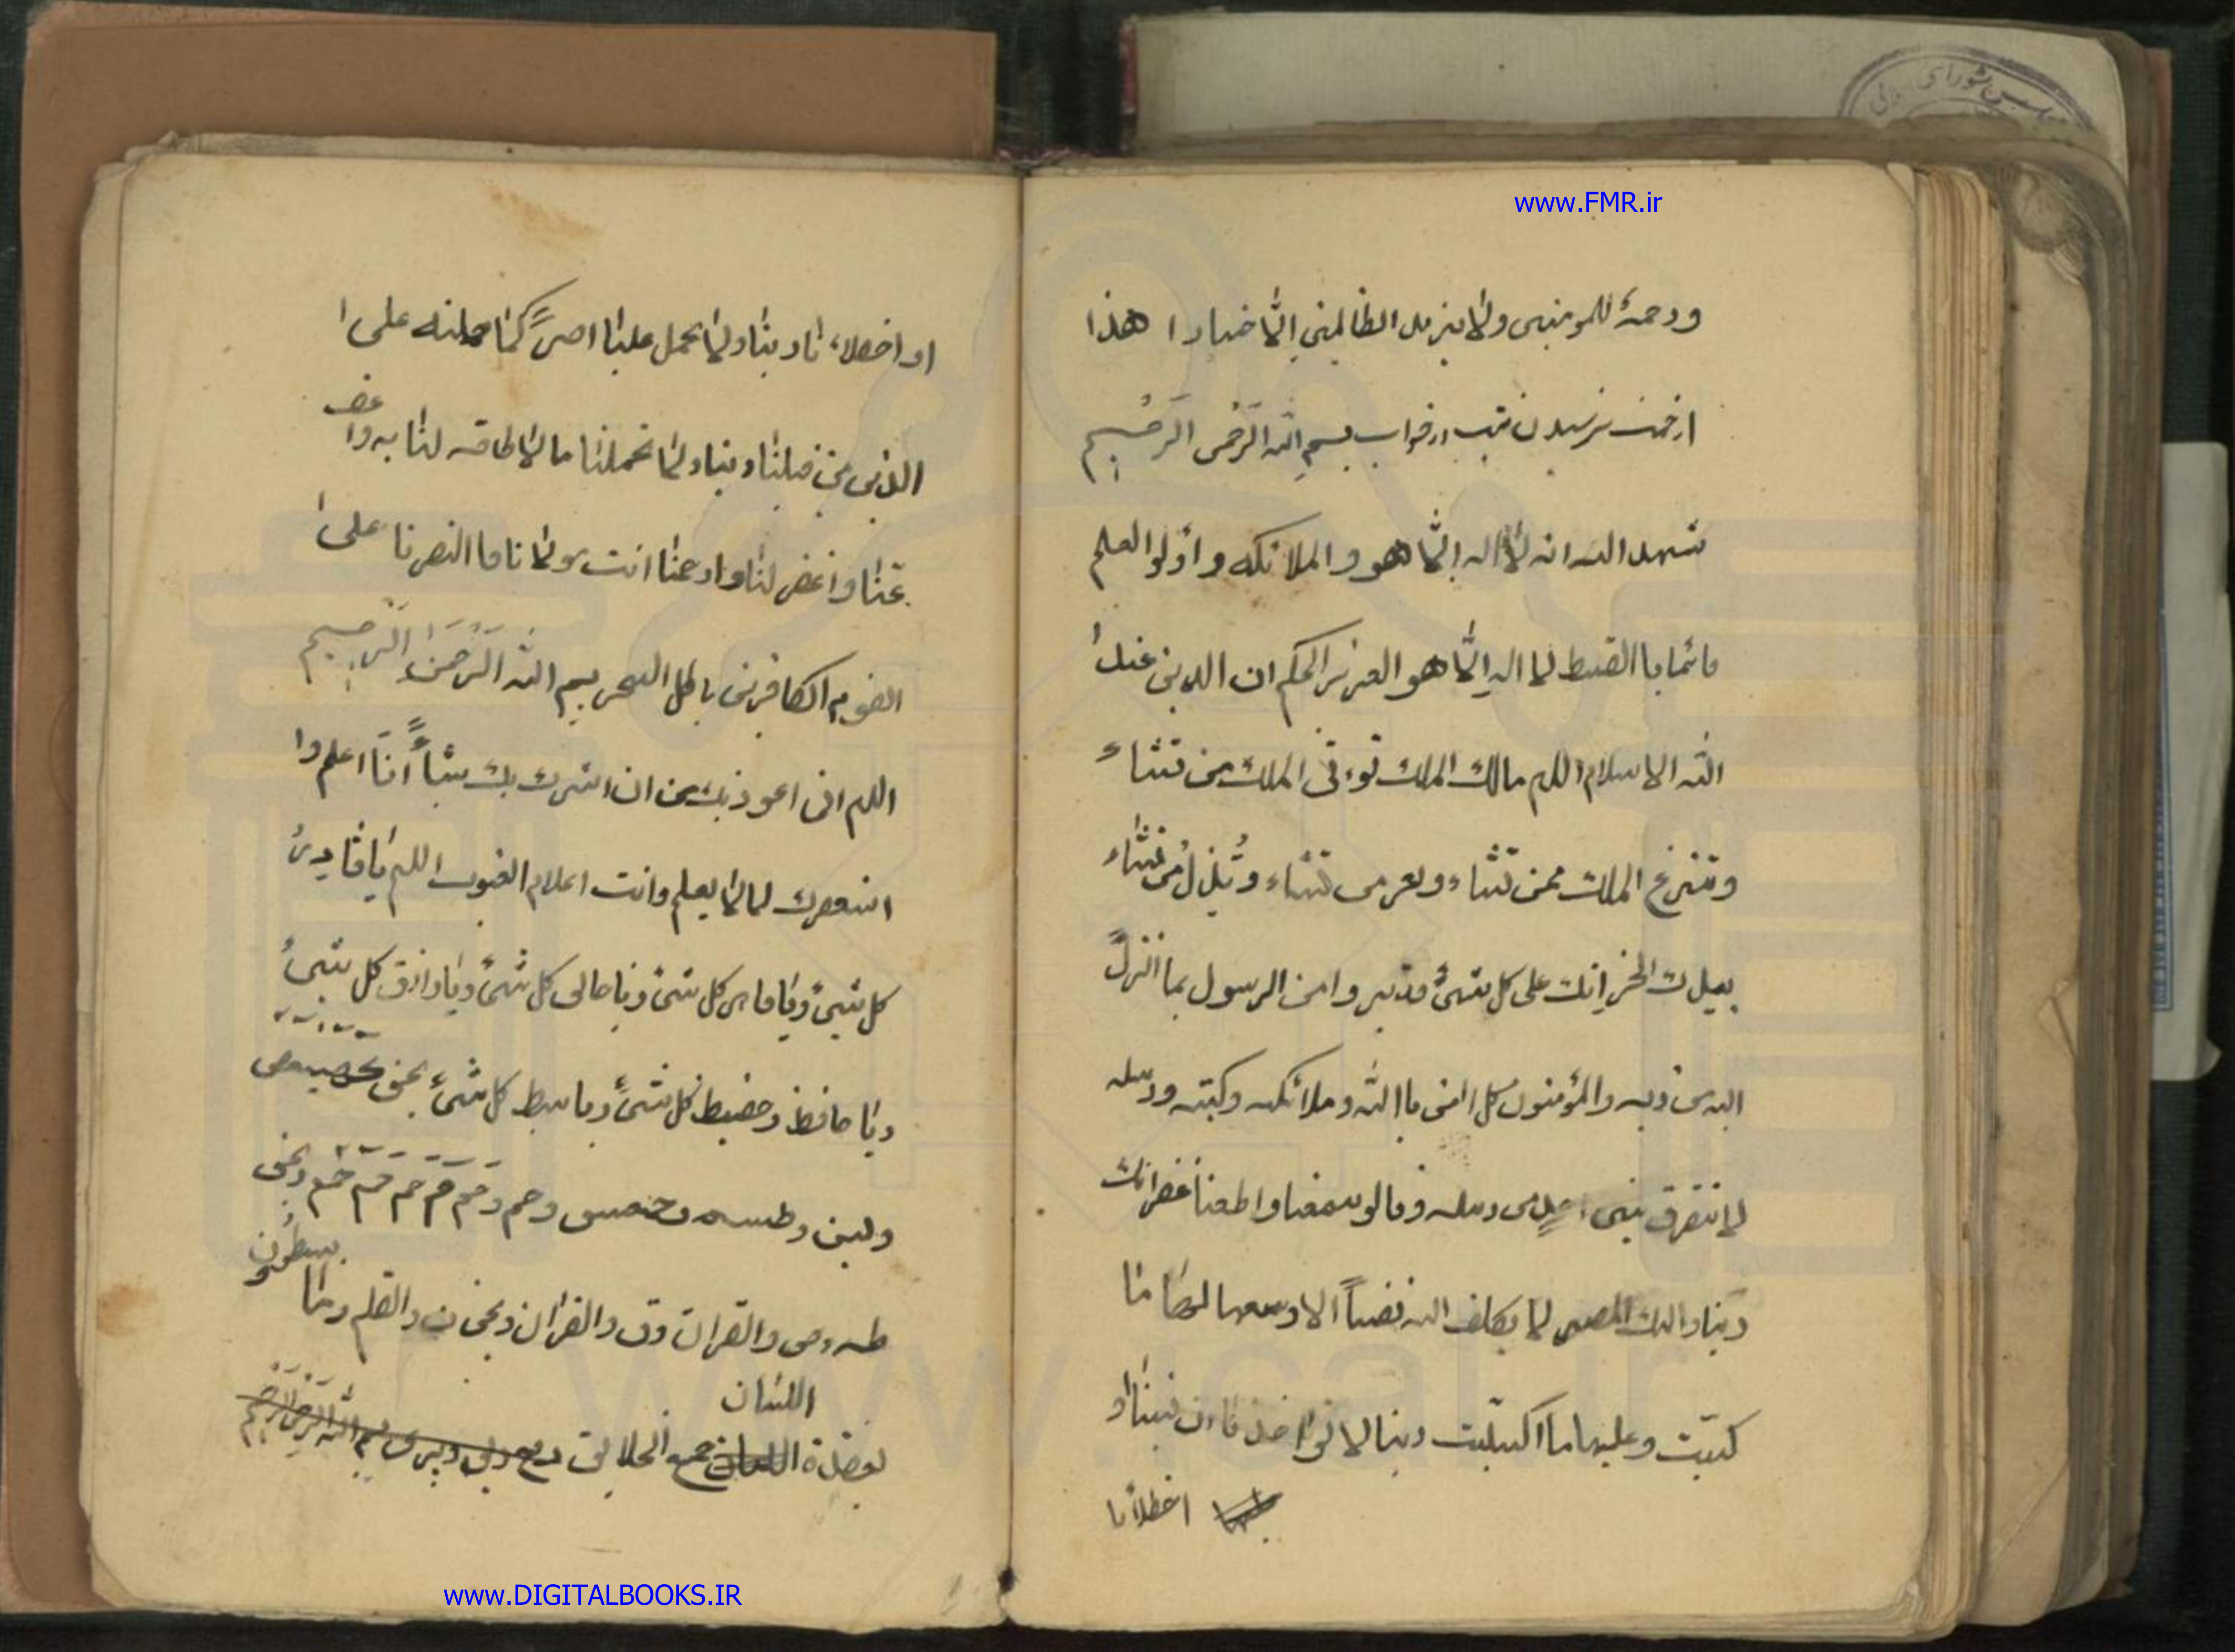 www.FMR.ir
ورحمة للمومنين ولا يزيد الظالمين الا خسارا هذا
از جهت ترسيدن تب در خواب بسم الله الرحمن الرحيم
شهد الله انه لا اله الا هو والملائكه واولوا العلم
قائما باالقسط لا اله الا هو العزيز الحكيم ان الدين عند ا
الله الاسلام اللهم مالك الملك توءتى الملك من تشاء
وتنزع الملك ممن تشاء وتعز من تشاء وتذل من تشاء
بيدك الخير انك على كل شئ قدير وامن الرسول بما انزل
اليه من ربه والمؤمنون كل امن باالله وملائكته وكتبه ورسله
لا نفرق بين احد من رسله وقالو سمعنا واطعنا غفرانك
ربنا واليك المصير لا يكلف الله نفساً الا وسعها لها ما
كسبت وعليها ما اكتسبت ربنا لا تواخذنا ان نسينا او
اخطأنا
او اخطاء نا ربنا ولا تحمل علينا اصراً كما حملته على ا
الذين من قبلنا ربنا ولا تحملنا ما لا طاقه لنا به واعف
عنا واغفر لنا وارحمنا انت مولانا فا النصرنا على ا
القوم الكافرين باطل السحر بسم الله الرحمن الرحيم
اللهم انى اعوذ بك من ان اشرك بك شيأً انا اعلم وا
استغفرك لما لا يعلم وانت اعلام الغيوب اللهم يا قادر
كل شئ ويا كل شئ ويا خالق كل شئ ويا رازق كل شئ
ويا حافظ وحفيظ كل شئ ويا باسط كل شئ بحق كهيعص
ويس وطسم وحمعسق وحم وحم حم حم حم وبحق
طه وص والقران وق والقران وبحق ن والقلم وما يسطرون
اللسان
بعقدة جمع الخلايق
www.DIGITALBOOKS.IR